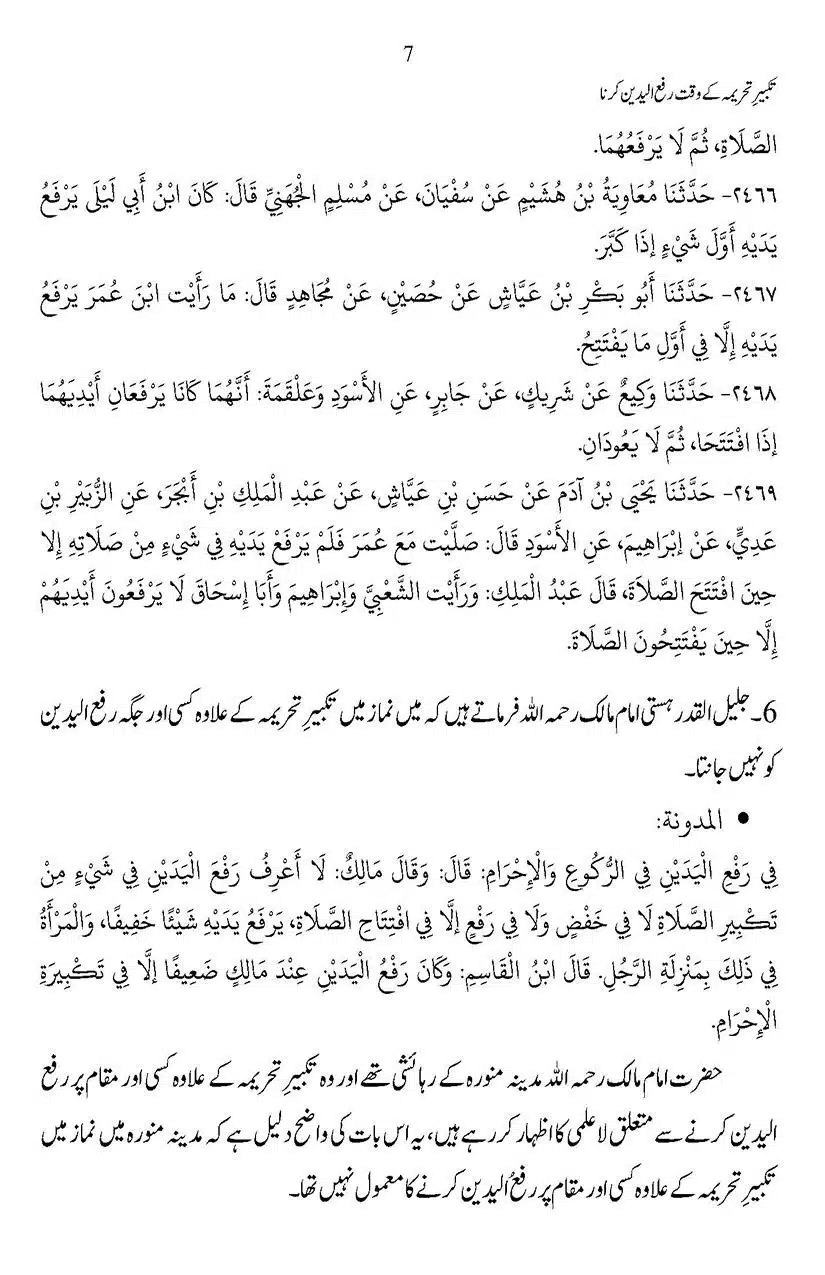 7
تکبیرِ تحریمہ کے وقت رفع الیدین کرنا
الصَّلَاةِ، ثُمَّ لَا يَرْفَعُهُمَا.
٢٤٦٦- حَدَّثَنَا مُعَاوِيَةُ بْنُ هُشَيْمٍ عَنْ سُفْيَانَ، عَنْ مُسْلِمٍ الْجُهَنِيِّ قَالَ: كَانَ ابْنُ أَبِي لَيْلَى يَرْفَعُ
يَدَيْهِ أَوَّلَ شَيْءٍ إذَا كَبَّرَ.
٢٤٦٧- حَدَّثَنَا أَبُو بَكْرِ بْنُ عَيَّاشٍ عَنْ حُصَيْنٍ، عَنْ مُجَاهِدٍ قَالَ: مَا رَأَيْت ابْنَ عُمَرَ يَرْفَعُ
يَدَيْهِ إلَّا فِي أَوَّلِ مَا يَفْتَتِحُ.
٢٤٦٨- حَدَّثَنَا وَكِيعٌ عَنْ شَرِيكٍ، عَنْ جَابِرٍ، عَنِ الأَسْوَدِ وَعَلْقَمَةَ: أَنَّهُمَا كَانَا يَرْفَعَانِ أَيْدِيَهُمَا
إذَا افْتَتَحَا، ثُمَّ لَا يَعُودَانِ.
٢٤٦٩- حَدَّثَنَا يَحْيَى بْنُ آدَمَ عَنْ حَسَنِ بْنِ عَيَّاشٍ، عَنْ عَبْدِ الْمَلِكِ بْنِ أَبْجَرَ، عَنِ الزُّبَيْرِ بْنِ
عَدِيٍّ، عَنْ إبْرَاهِيمَ، عَنِ الأَسْوَدِ قَالَ: صَلَّيْت مَعَ عُمَرَ فَلَمْ يَرْفَعْ يَدَيْهِ فِي شَيْءٍ مِنْ صَلَاتِهِ إلا
حِينَ افْتَتَحَ الصَّلاَةَ، قَالَ عَبْدُ الْمَلِكِ: وَرَأَيْت الشَّعْبِيَّ وَإِبْرَاهِيمَ وَأَبَا إِسْحَاقَ لَا يَرْفَعُونَ أَيْدِيَهُمْ
إلَّا حِينَ يَفْتَتِحُونَ الصَّلَاةَ.
6۔ جلیل القدر ہستی امام مالک رحمہ اللہ فرماتے ہیں کہ میں نماز میں تکبیرِ تحریمہ کے علاوہ کسی اور جگہ رفع الیدین
کو نہیں جانتا۔
● المدونة:
فِي رَفْعِ الْيَدَيْنِ فِي الرُّكُوعِ وَالْإِحْرَامِ: قَالَ: وَقَالَ مَالِكٌ: لَا أَعْرِفُ رَفْعَ الْيَدَيْنِ فِي شَيْءٍ مِنْ
تَكْبِيرِ الصَّلَاةِ لَا فِي خَفْضٍ وَلَا فِي رَفْعٍ إلَّا فِي افْتِتَاحِ الصَّلَاةِ، يَرْفَعُ يَدَيْهِ شَيْئًا خَفِيفًا، وَالْمَرْأَةُ
فِي ذَلِكَ بِمَنْزِلَةِ الرَّجُلِ. قَالَ ابْنُ الْقَاسِمِ: وَكَانَ رَفْعُ الْيَدَيْنِ عِنْدَ مَالِكٍ ضَعِيفًا إلَّا فِي تَكْبِيرَةِ
الْإِحْرَامِ.
حضرت امام مالک رحمہ اللہ مدینہ منورہ کے رہائشی تھے اور وہ تکبیرِ تحریمہ کے علاوہ کسی اور مقام پر رفع
الیدین کرنے سے متعلق لاعلمی کا اظہار کر رہے ہیں، یہ اس بات کی واضح دلیل ہے کہ مدینہ منورہ میں نماز میں
تکبیرِ تحریمہ کے علاوہ کسی اور مقام پر رفعُ الیدین کرنے کا معمول نہیں تھا۔